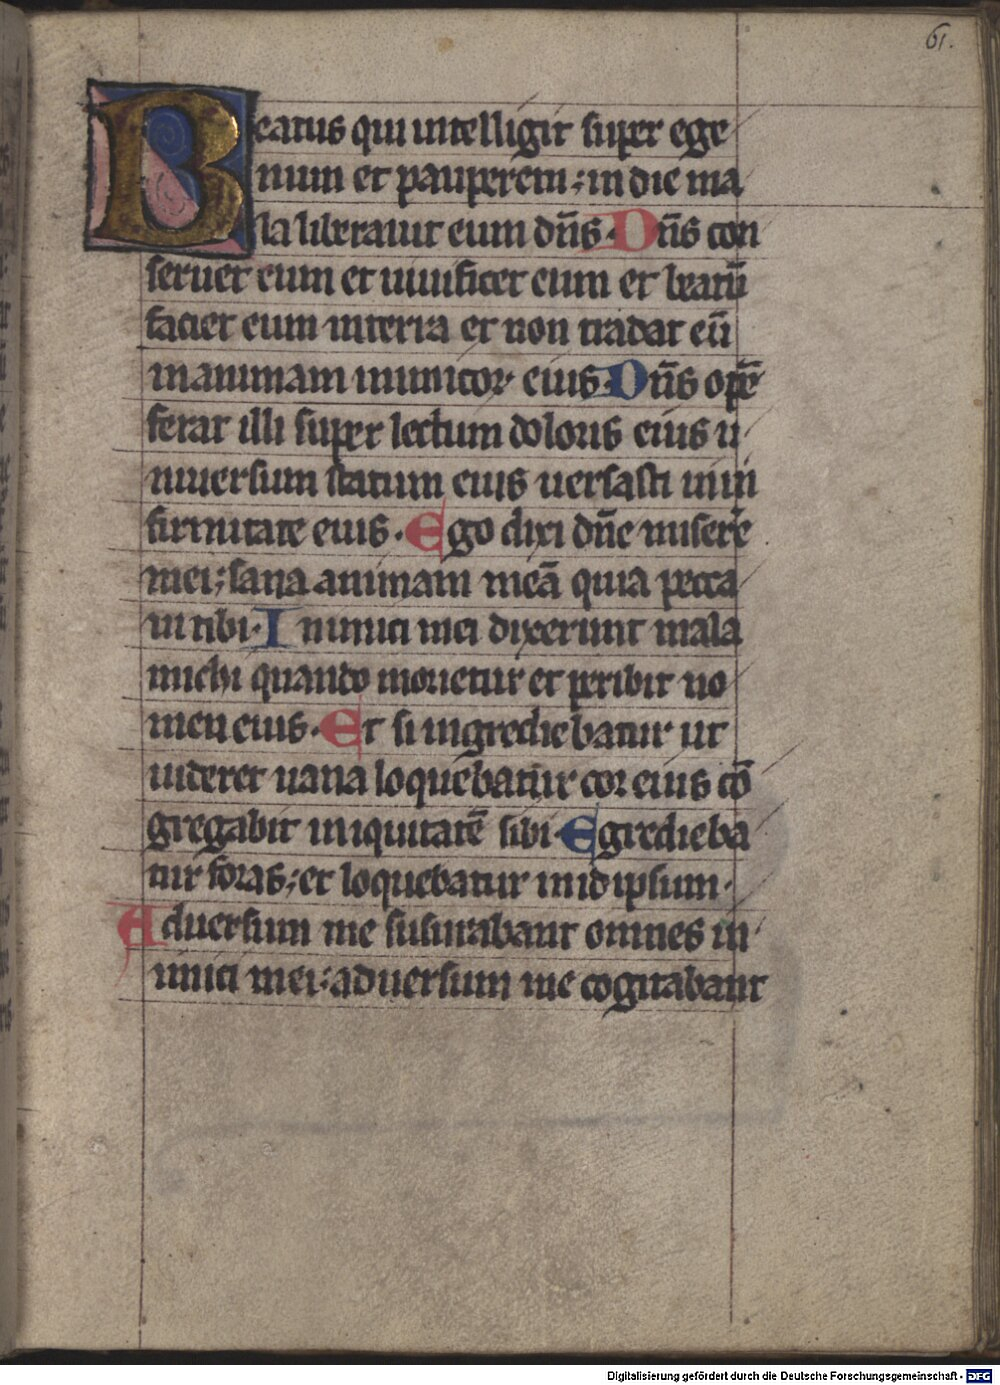 61.
Beatus qui intelligit super ege
num et pauperem; in die ma
la liberauit eum dn̄s. Dn̄s con
seruet eum et uiuificet eum et beatū
faciet eum interra et non tradat eū
inanimam inimicor eius. Dn̄s opē
ferat illi super lectum doloris eius u
niuersum statum eius uersasti inin
firmitate eius. Ego dixi dn̄e miserē
mei; sana animam meā quia pecca
ui tibi. Inimici mei dixerunt mala
michi quando morietur et peribit no
men eius. Et si ingrediebatur ut
uideret uana loquebatur cor eius cō
gregabit iniquitatē sibi. Egredieba
tur foras; et loquebatur inidipsum.
Aduersum me susurabant omnes in
imici mei; aduersum me cogitabant
Digitalisierung gefördert durch die Deutsche Forschungsgemeinschaft - DFG